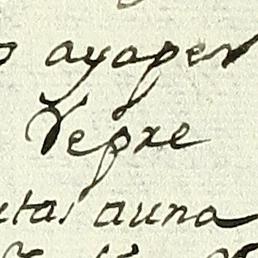 o ayaper
Vepre
utas auna